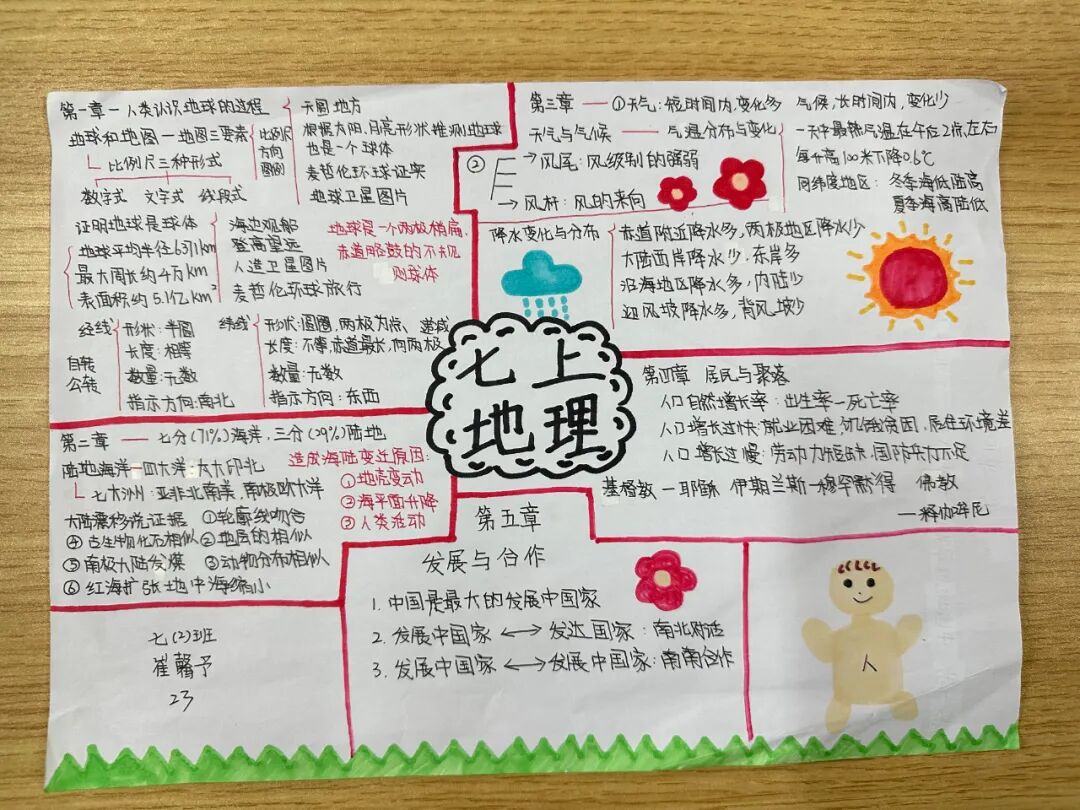 第一章 — 人类认识地球的过程
天圆地方
根据太阳,月亮形状推测地球
也是一个球体
麦哲伦环球证实
地球卫星图片
地球和地图 — 地图三要素
比例尺
方向
图例
比例尺三种形式
数字式 文字式 线段式
证明地球是球体
海边观船
登高望远
人造卫星图片
麦哲伦环球旅行
地球是一个两极稍扁,
赤道略鼓的不规
则球体
地球平均半径6371km
最大周长约4万km
表面积约5.1亿km²
自转
公转
经线
形状:半圆
长度:相等
数量:无数
指示方向:南北
纬线
形状:圆圈,两极为点
长度:不等,赤道最长,向两极
数量:无数
指示方向:东西
第二章 — 七分(71%)海洋,三分(29%)陆地
陆地海洋 — 四大洋:太大印北
七大洲:亚非北南美,南极欧大洋
造成海陆变迁原因:
①地壳变动
②海平面升降
③人类活动
大陆漂移说证据 ①轮廓线吻合
④古生物化石相似 ②地层的相似
⑤南极大陆发煤 ③动物分布相似
⑥红海扩张地中海缩小
七(2)班
崔馨予
23
第三章 — ①天气:短时间内,变化多 气候,长时间内,变化少
天气与气候 — 气温分布与变化
一天中最热气温在午后2点左右
每升高100米下降0.6℃
同纬度地区: 冬季海低陆高
夏季海高陆低
② 风尾:风级制的强弱
风杆:风的来向
降水变化与分布
赤道附近降水多,两极地区降水少
大陆西岸降水少,东岸多
沿海地区降水多,内陆少
迎风坡降水多,背风坡少
七上
地理
第四章 居民与聚落
人口自然增长率:出生率-死亡率
人口增长过快:就业困难,饥饿贫困,居住环境差
人口增长过慢:劳动力短缺,国防兵力不足
基督教 — 耶稣 伊斯兰斯 — 穆罕默得 佛教
— 释伽牟尼
第五章
发展与合作
1.中国是最大的发展中国家
2.发展中国家 ↔ 发达国家:南北对话
3.发展中国家 ↔ 发展中国家:南南合作
人